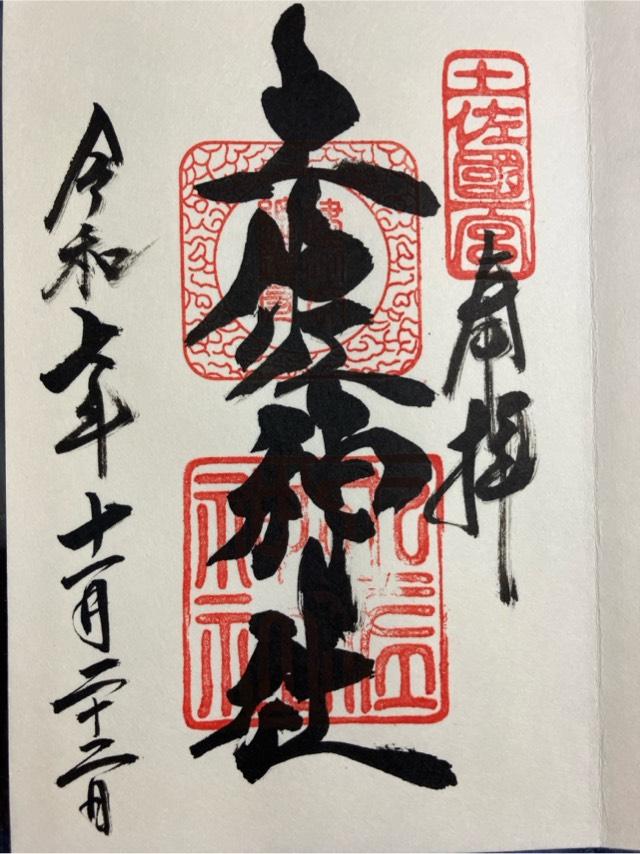 土佐國一宮
奉拝
土佐神社
土佐
神社
令和七年十一月二十二日